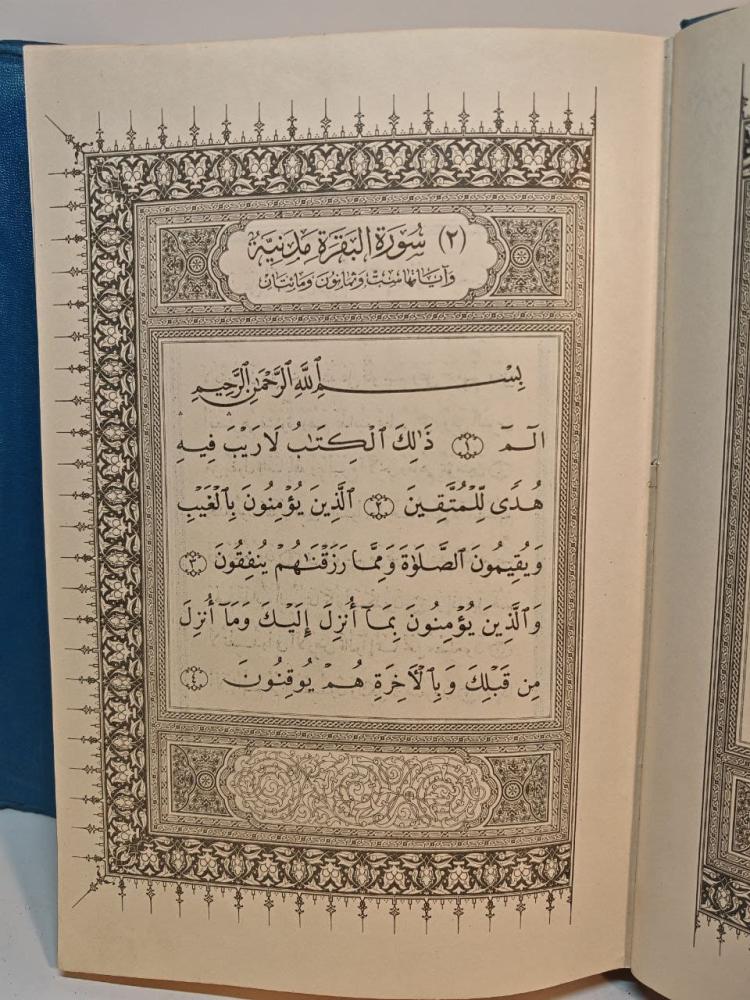 (٢) سُورَةُ البَقَرَةِ مَدَنِيَّة
وَآيَاتُهَا سِتٌّ وَثَمَانُونَ وَمَائِتَانِ
بِسْمِ ٱللَّهِ ٱلرَّحْمَٰنِ ٱلرَّحِيمِ
الٓمٓ ١ ذَٰلِكَ ٱلْكِتَٰبُ لَا رَيْبَ فِيهِ
هُدًى لِّلْمُتَّقِينَ ٢ ٱلَّذِينَ يُؤْمِنُونَ بِٱلْغَيْبِ
وَيُقِيمُونَ ٱلصَّلَوٰةَ وَمِمَّا رَزَقْنَٰهُمْ يُنفِقُونَ ٣
وَٱلَّذِينَ يُؤْمِنُونَ بِمَآ أُنزِلَ إِلَيْكَ وَمَآ أُنزِلَ
مِن قَبْلِكَ وَبِٱلْأَخِرَةِ هُمْ يُوقِنُونَ ٤